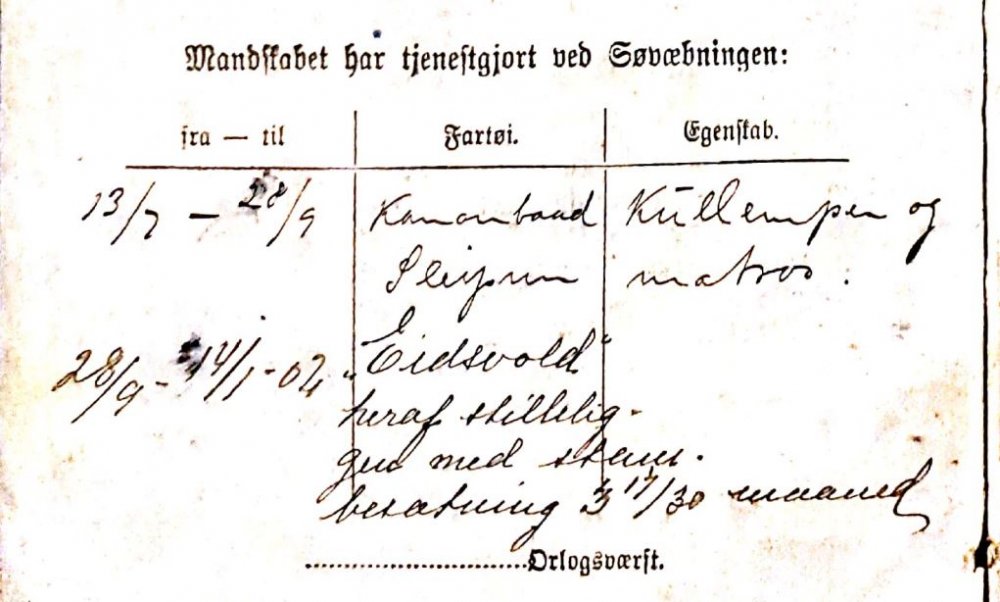 Mandskabet har tjenestgjort ved Søvæbningen:
fra — til Fartøi. Egenskab.
13/7 — 28/9 Kanonbaad Kullemper og
Sleipner matros.
28/9 - 14/1 - 02 „Eidsvold"
heraf stillelig-
gen med stam-
besætning 3 17/30 maaned
Orlogsværft.